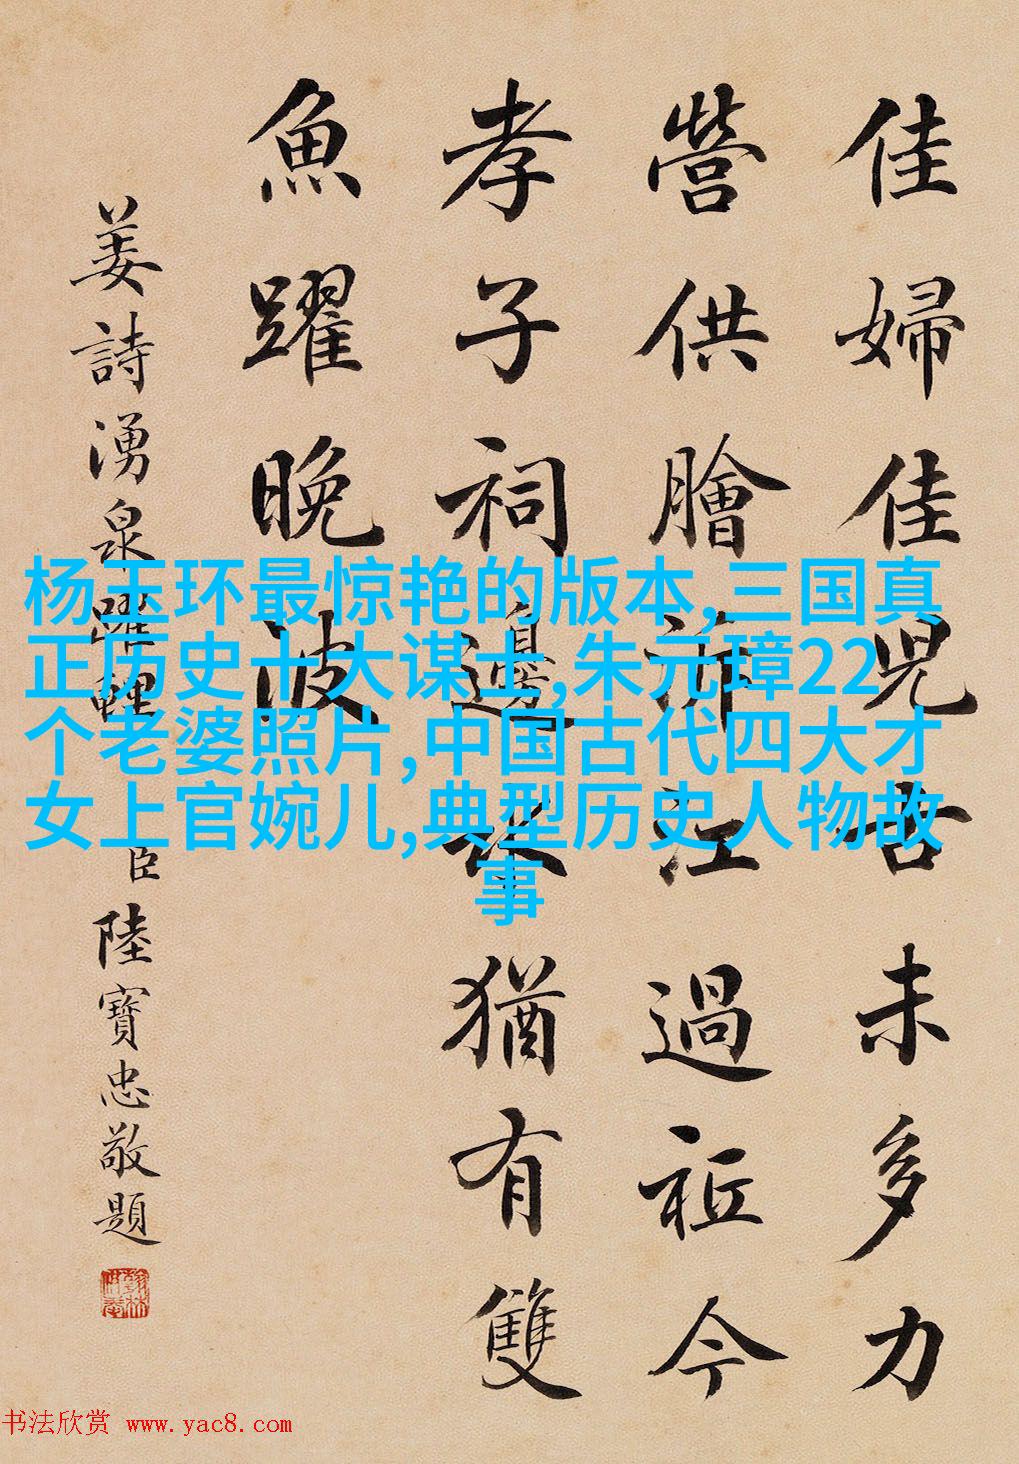 佳婦佳兒苦未多力
營供膾泝江過祗今
孝子祠邊水猶有雙
魚躍晚波
姜詩湧泉躍鯉 臣陸寶忠敬題
杨玉环最惊艳的版本,三国真
正历史十大谋士,朱元璋22
个老婆照片,中国古代四大才
女上官婉儿,典型历史人物故
事
书法欣赏 www.yac8.com